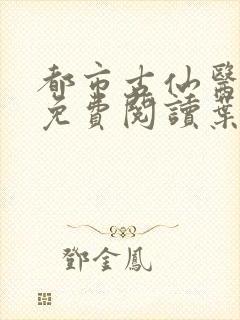 都市古仙醫
免費閱讀葉
鄧金鳳